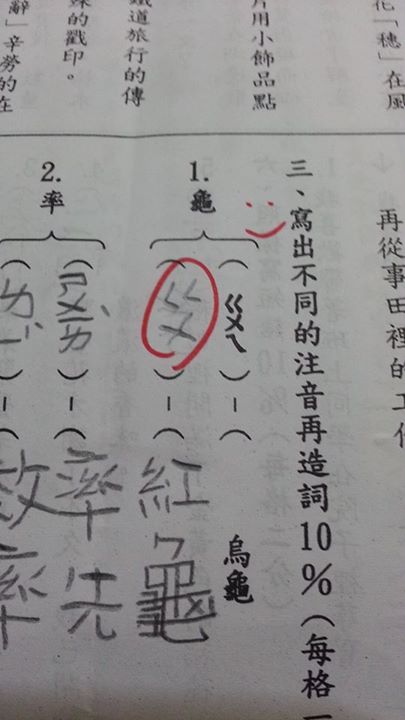 「穗」在風
用小飾品點
道旅行的傳
的戳印。
」辛勞的在
再從事田裡的工作
三、寫出不同的注音再造詞10%(每格一
1.龜
(ㄍㄨㄟ)-(烏龜
(ㄍㄨ)-(紅龜
2.率
(ㄕㄨㄞˋ)-(率先
)-(效率